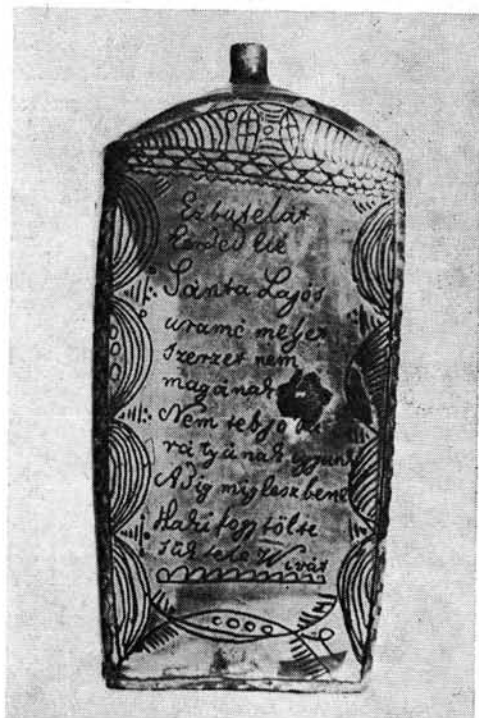 Ez butelát
kérded kié
Sánta Lajós
uramé melyet
szerzet nem
magának
Nem
rátyának igyunk
Adig mig lesz bene
Ha ki fogy tölte
sük tele Wivát